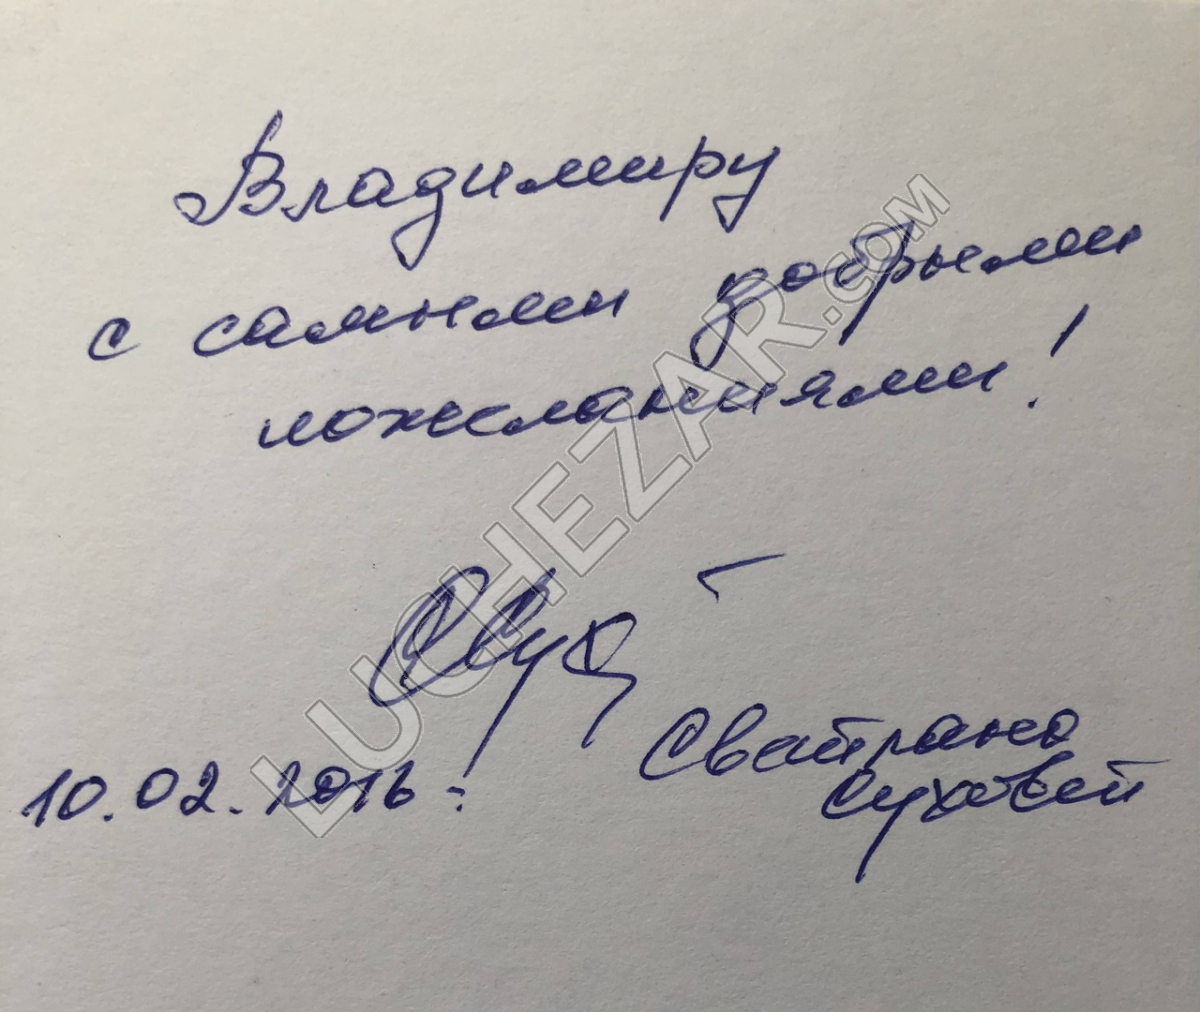 Владимиру
с самыми добрыми
пожеланиями!
10.02.2016 г.
Светлана
Суховей
LUCHEZAR.COM